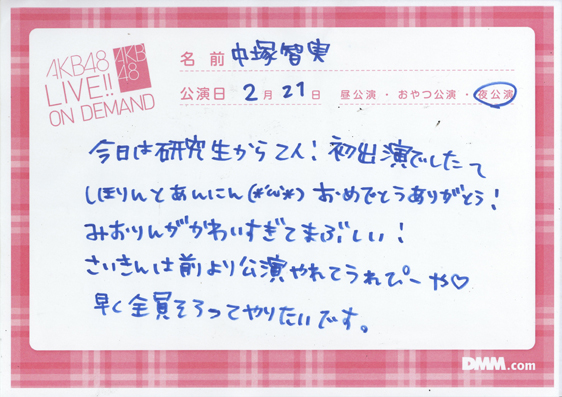 AKB48
LIVE!!
ON DEMAND
AKB
48
名前 中塚智実
公演日 2月21日 昼公演・おやつ公演・夜公演
今日は研究生から2人!初出演でしたて
しほりんとあんにん(*'ω'*)おめでとうありがとう!
みおりんがかわいすぎてまぶしい!
さいきんは前より公演やれてうれぴーや♡
早く全員そろってやりたいです。
DMM.com